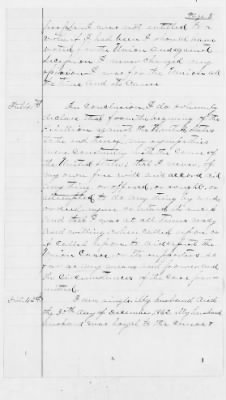 not entitled to a
vote if I had been I should have
voted for the Union and against
Secession I never changed my
opinion I was for the Union all
the time and its Cause
In conclusion I do solemnly
declare that from the beginning of the
rebellion against the United States
to the end thereof my sympathies
were constantly with the Cause of
the United States that I never of
my own free will and accord did
any thing or offered or sought or
attempted to do any thing by word
or deed to injure
and that I was at all times ready
and willing when called upon or
if called upon to aid and assist the
Union Cause or its supporters so
far as my means and power and
the circumstances of the case per=
mitted
I am single My husband died
the 30th day of December 1862 My husband
husband was loyal to the cause &